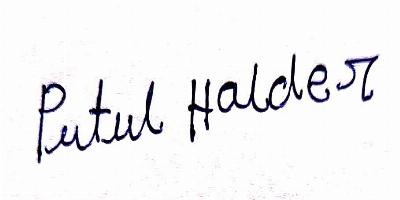 Putul Halder